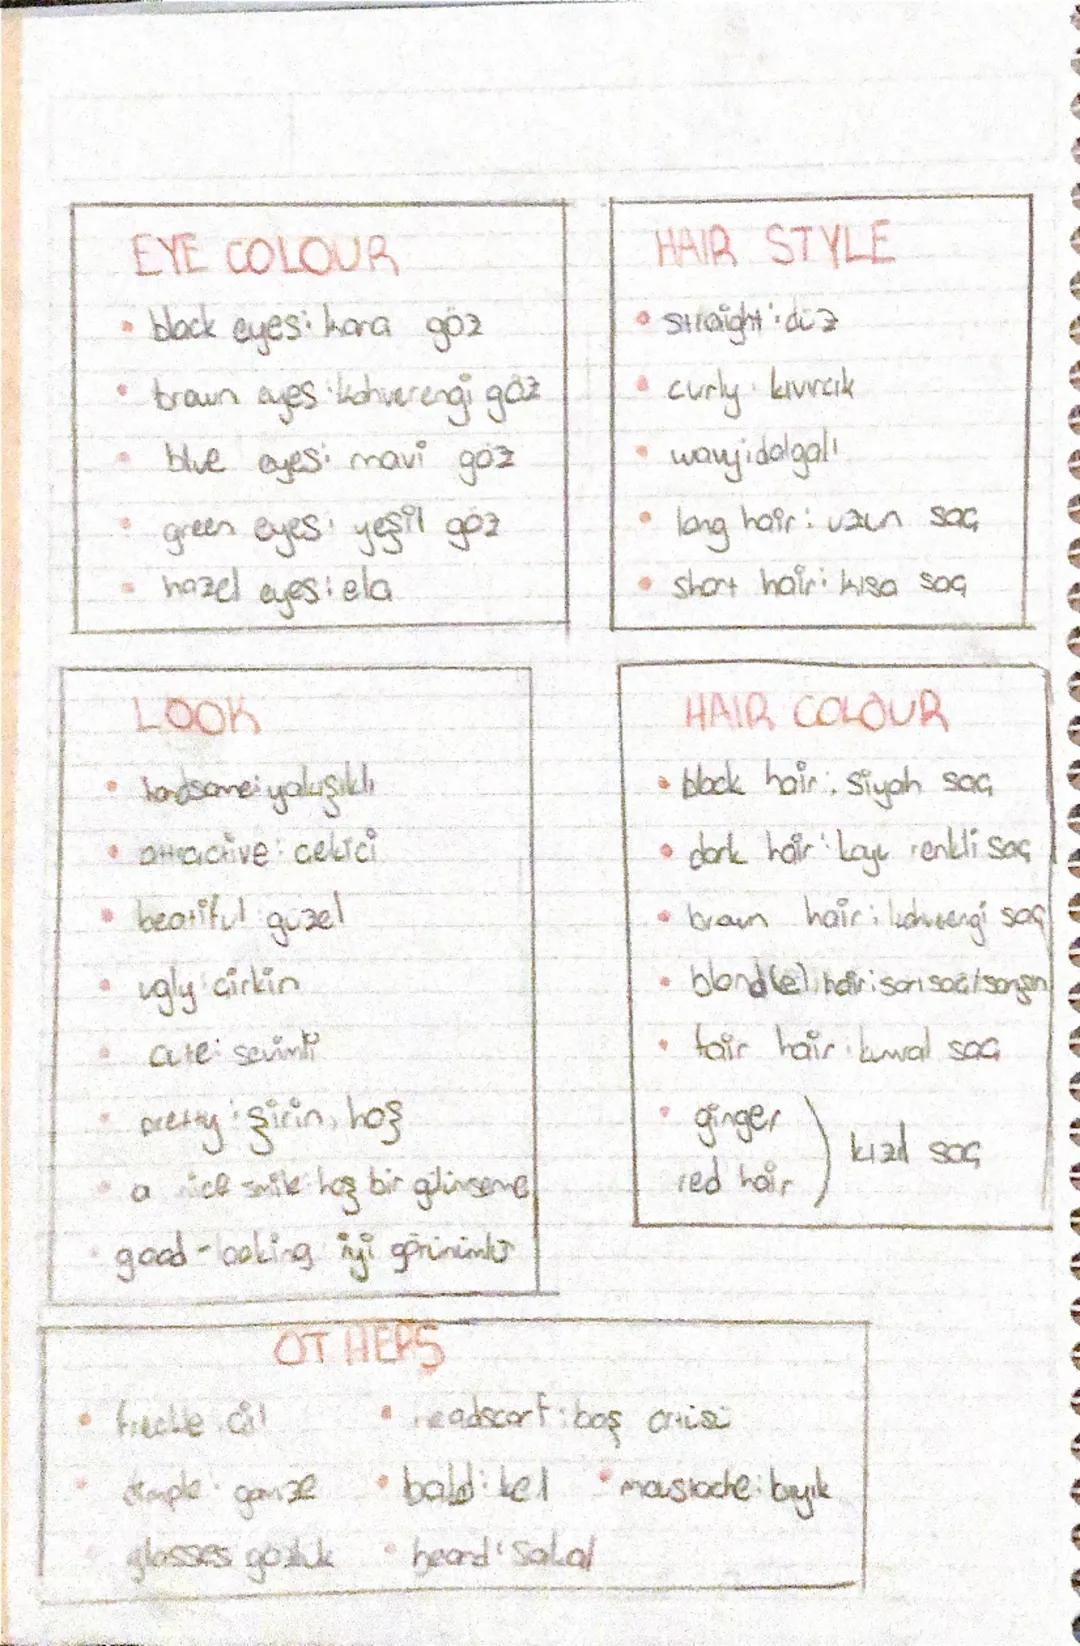 EYE COLOUR
• black eyes: kara göz
• brown eyes: kahverengi göz
• blue eyes: mavi göz
• green eyes: yeşil göz
• hazel eyes: ela
HAIR STYLE
• straight: düz
• curly: kıvırcık
• wavy: dalgalı
• long hair: uzun saç
• short hair: kısa saç
LOOK
• handsome: yakışıklı
• attractive: çekici
• beatiful: güzel
• ugly: çirkin
• cute: sevimli
• pretty: şirin, hoş
• a nice smile: hoş bir gülünseme
• good-looking: iyi görünümlü
HAIR COLOUR
• black hair: siyah saç
• dark hair: koyu renkli saç
• brown hair: kahverengi saç
• blond(e) hair: sarı saç/sarışın
• fair hair: kumral saç
• ginger
red hair) kızıl saç
OTHERS
• freckle: çil
• headscarf: baş örtüsü
• dimple: gamze
• bald: kel
• moustache: bıyık
glasses: gözlük
• beard: sakal